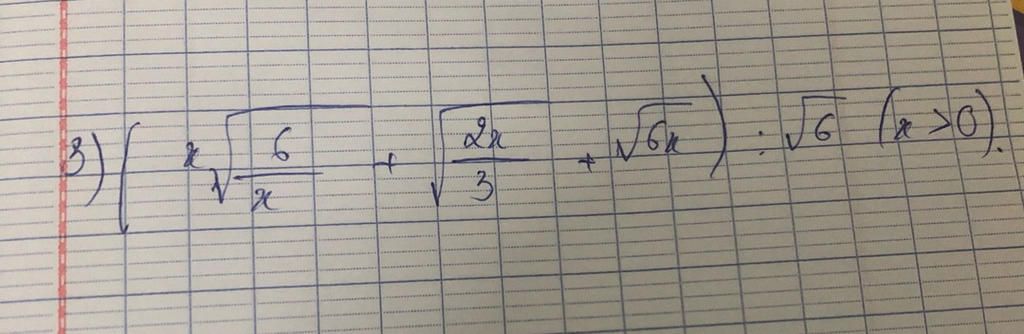 3) ( x√(6/x) + √(2x/3) + √6x ) : √6 (x > 0).